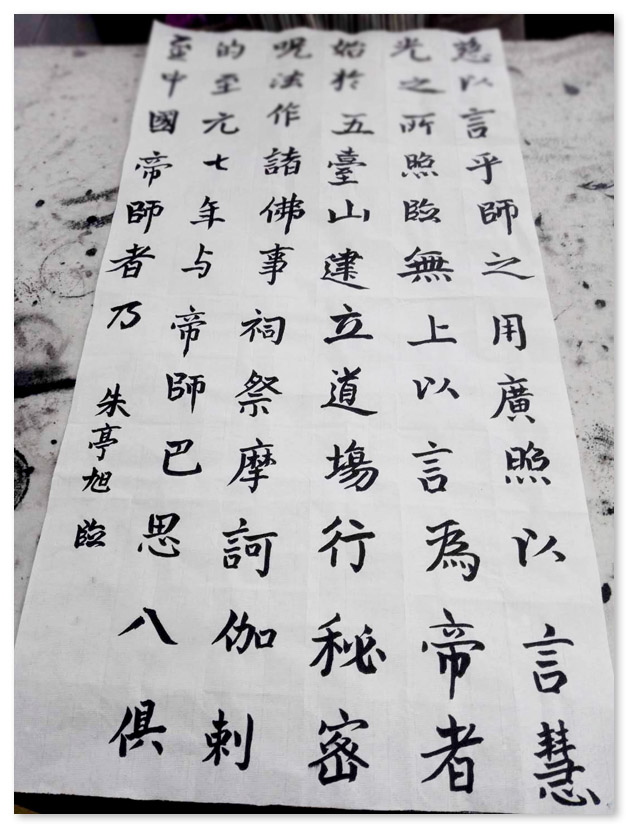 慈以言乎師之用廣照以言慧
光之所照臨無上以言為帝者
始於五臺山建立道場行秘密
呪法作諸佛事祠祭摩訶伽剌
的至元七年与帝師巴思八俱
至中國帝師者乃
朱亭旭臨